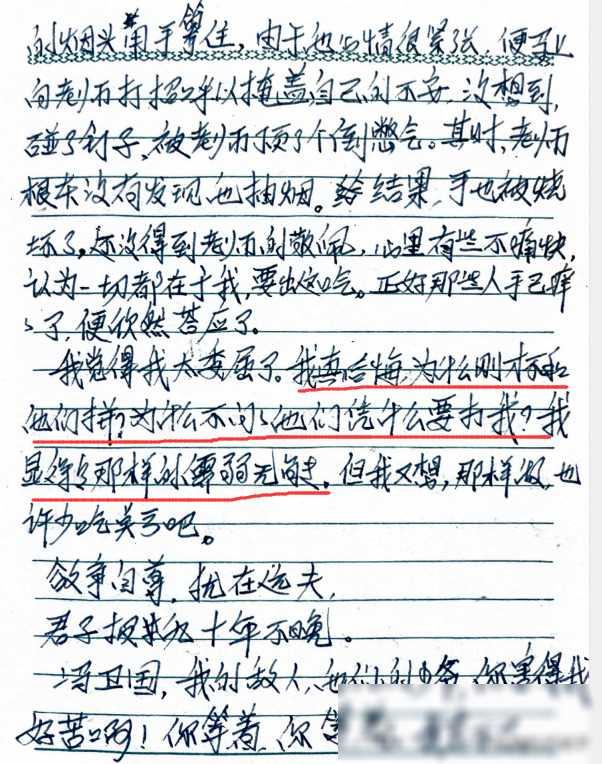 的烟头用手拿住，由于他心情很紧张，便马上
向老师打招呼以掩盖自己的不安，没想到，
碰了钉子，被老师顶了个倒憋气。其时，老师
根本没有发现他抽烟。给结果，手也被烧
坏了，还没得到老师的敬佩，心里有些不痛快，
认为一切都在于我，要出这吃。正好那些人手已痒
、了，便欣然答应了。
我觉得我太委屈了。我真后悔，为什么刚才不和
他们拼？为什么不问、他们凭什么要打我？我
显得那样的懦弱无能。但我又想，那样做，也
许少吃其亏吧。
君子报仇十年不晚。
冯卫国，我的敌人，他们的 你害得我
好苦啊！你等着，你